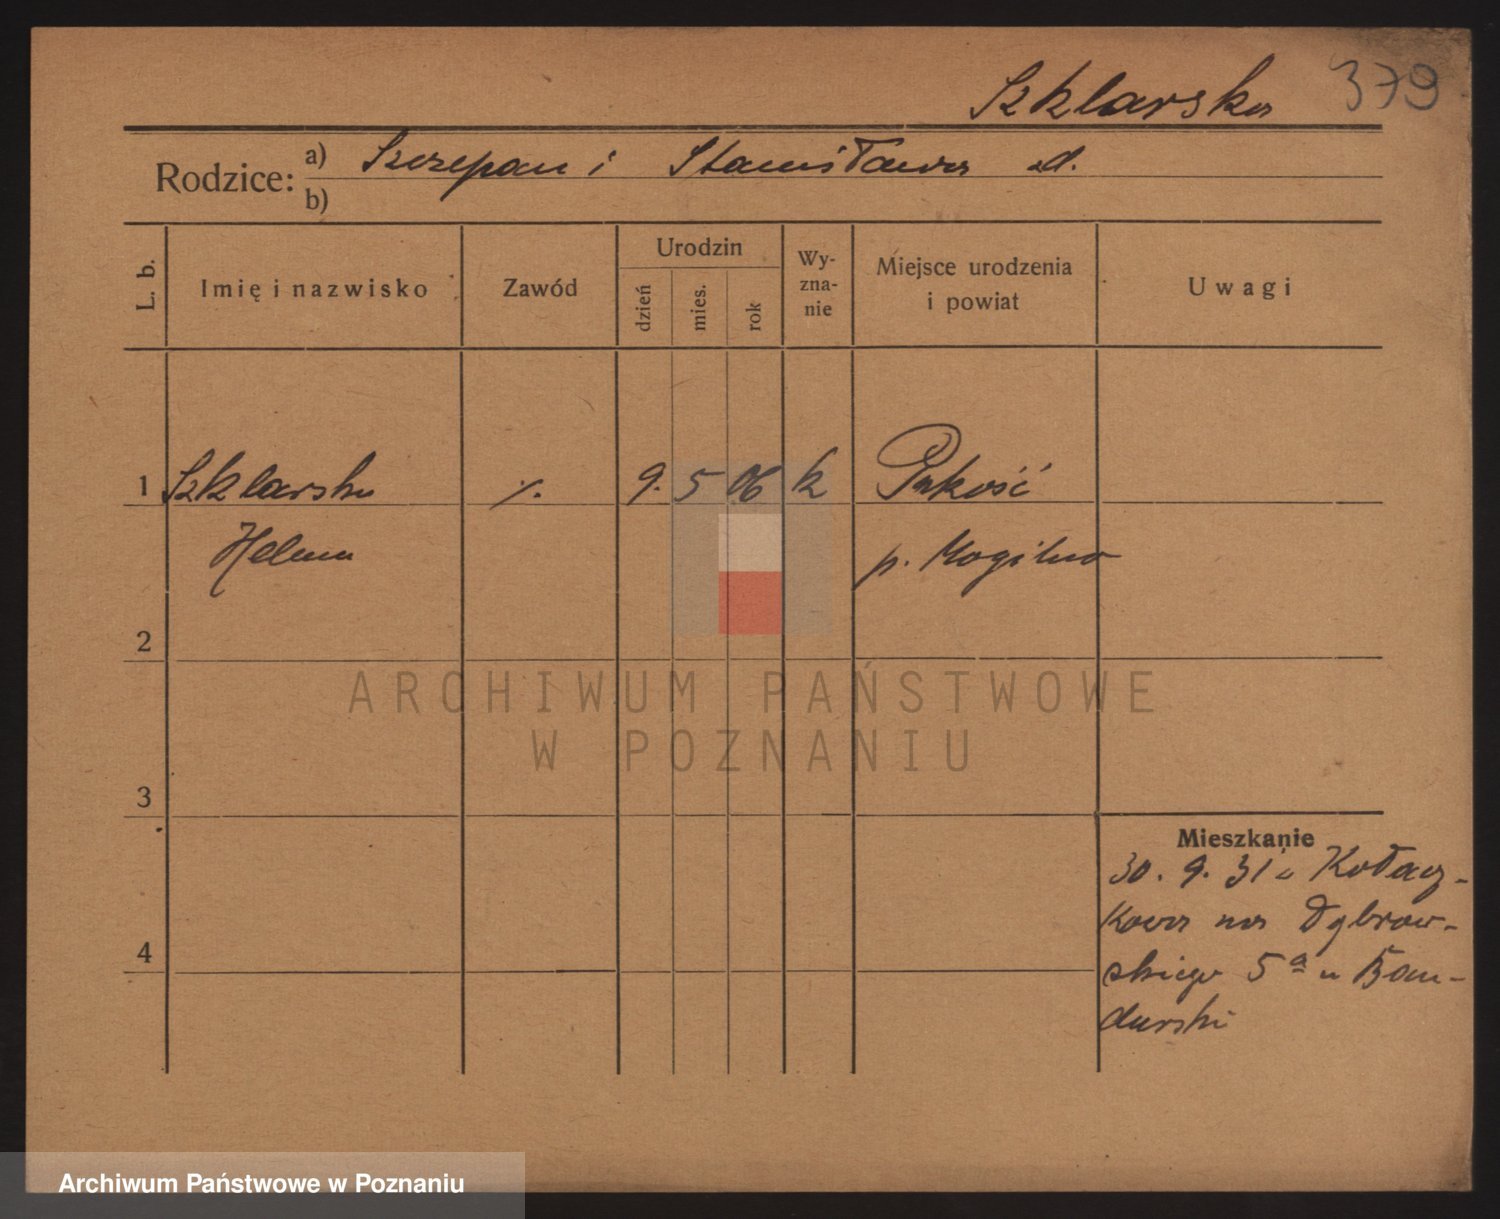 Szklarska 379
Rodzice: a) Szczepan i Stanisława d.
b)
L. b.
Imię i nazwisko
Zawód
Urodzin
dzień
mies.
rok
Wy-
zna-
nie
Miejsce urodzenia
i powiat
Uwagi
1 Szklarska ·/. 9. 5 06 k Pakość
Helena p. Mogilno
2
3
4
ARCHIWUM PAŃSTWOWE
W POZNANIU
Mieszkanie
30. 9. 31 z Kołacz-
kowa na Dąbrow-
skiego 5a u Ban-
durski
Archiwum Państwowe w Poznaniu